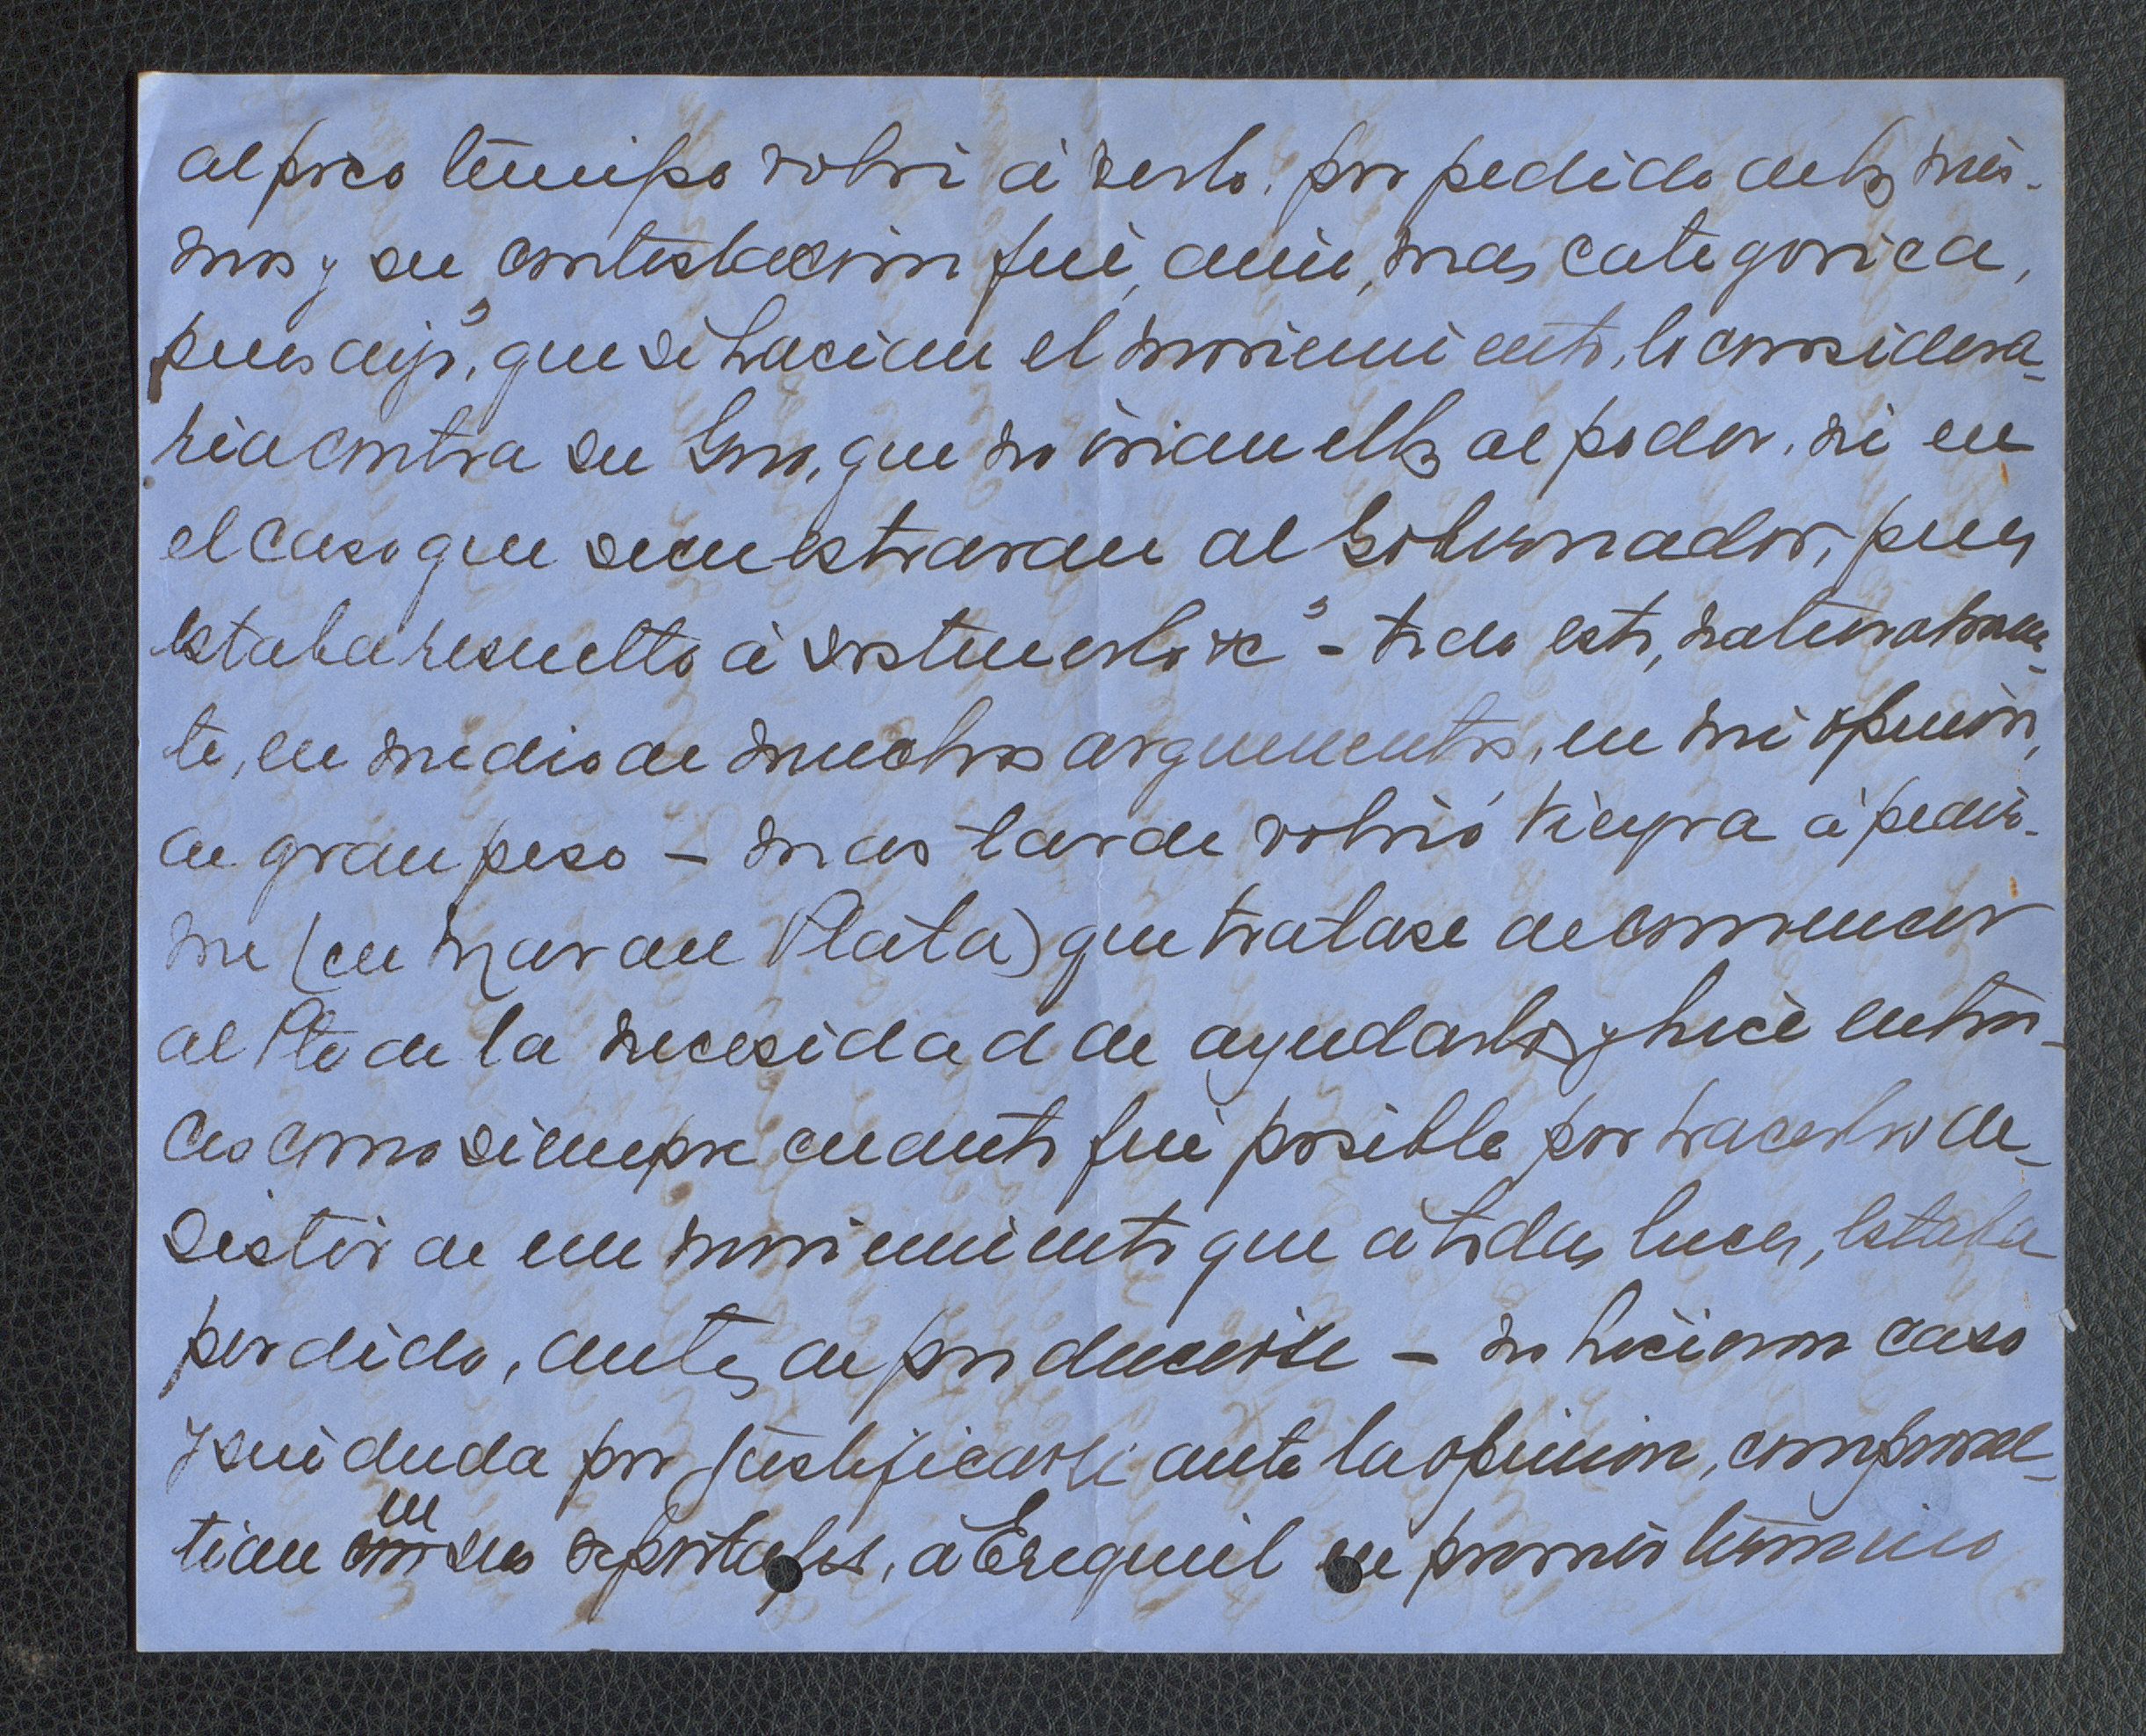 al poco tiempo volví à verlo, por pedido de los mis-
mos y su contestacion fué, aun, mas categorica,
pues dijo, que si hacian el movimiento, lo considera-
ria contra su Gno, que no irian ellos al poder, ni en
el caso que secuestraran al Gobernador, pues
estaba resuelto à sostenerlo &c - todo esto, naturalmen-
te, en medio de muchos argumentos, en mi opinion,
de gran peso - mas tarde volvió Vieyra à pedir-
me (en Mar del Plata) que tratase de convencer
al Pte de la necesidad de ayudarlos y hicé enton-
ces como siempre cuanto fué posible por hacerlos de-
sistir de un movimiento que à todas luces, estaba
perdido, antes de producirse - no hicieron caso
y sin duda por justificarse ante la opinion, comprome-
tian con en sus reportages, à Ezequiel en primer término